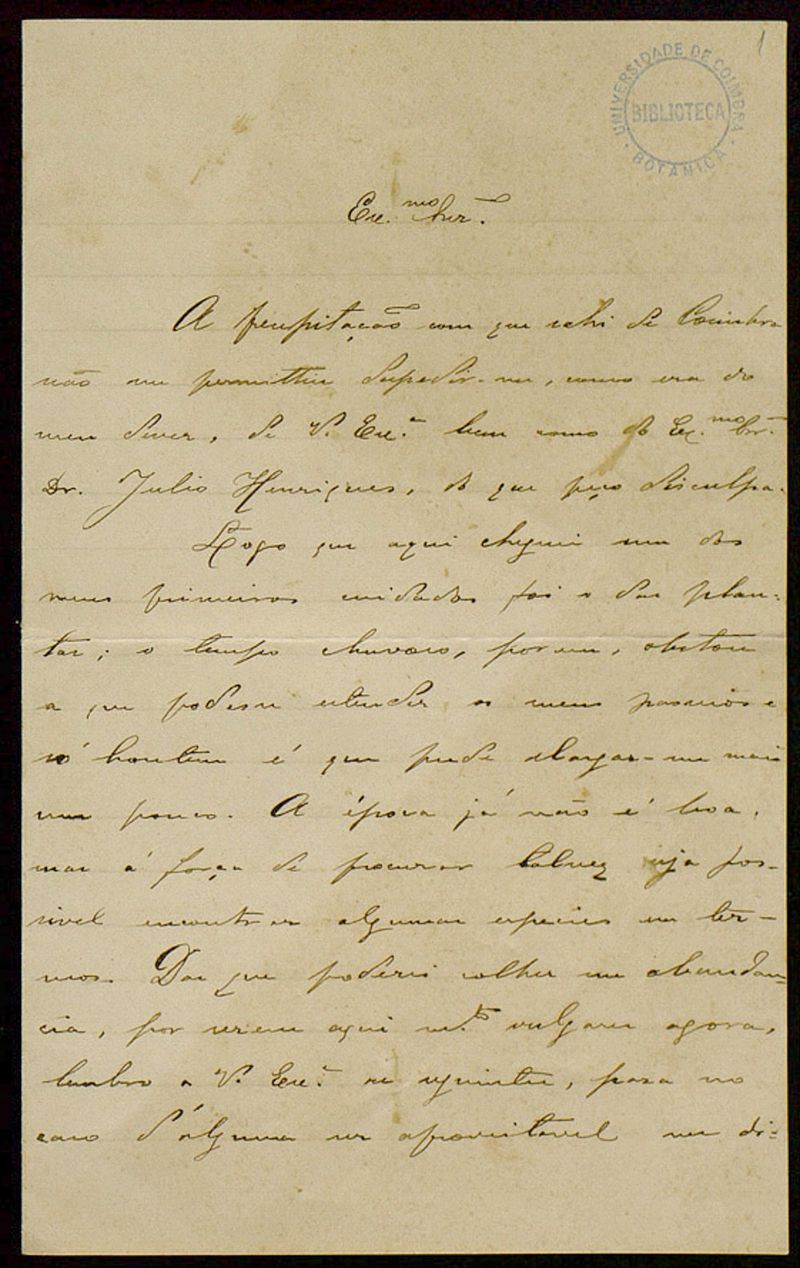 1
UNIVERSIDADE DE COIMBRA
BIBLIOTECA
BOTÂNICA
Exc.mo Snr.
A precipitação com que sahi de Coimbra
não me permittiu despedir-me, como era do
meu dever, de V. Exc.ª bem como do Ex.mo Snr.
Dr. Julio Henriques, do que peço disculpa.
Logo que aqui cheguei um dos
meus primeiros cuidados foi o das plan-
tas; o tempo chuvoso, porem, obstou
a que podesse estender os meus passeios e
só hontem é que pude alargar-me mais
um pouco. A época já não é boa,
mas á força de procurar talvez seja pos-
sivel encontrar algumas especies em ter-
mos. Das que poderei colher em abundan-
cia, por serem aqui m.to vulgares agora,
lembro a V. Exc.ª as seguintes, para no
caso d'alguma ser aproveitavel me di-